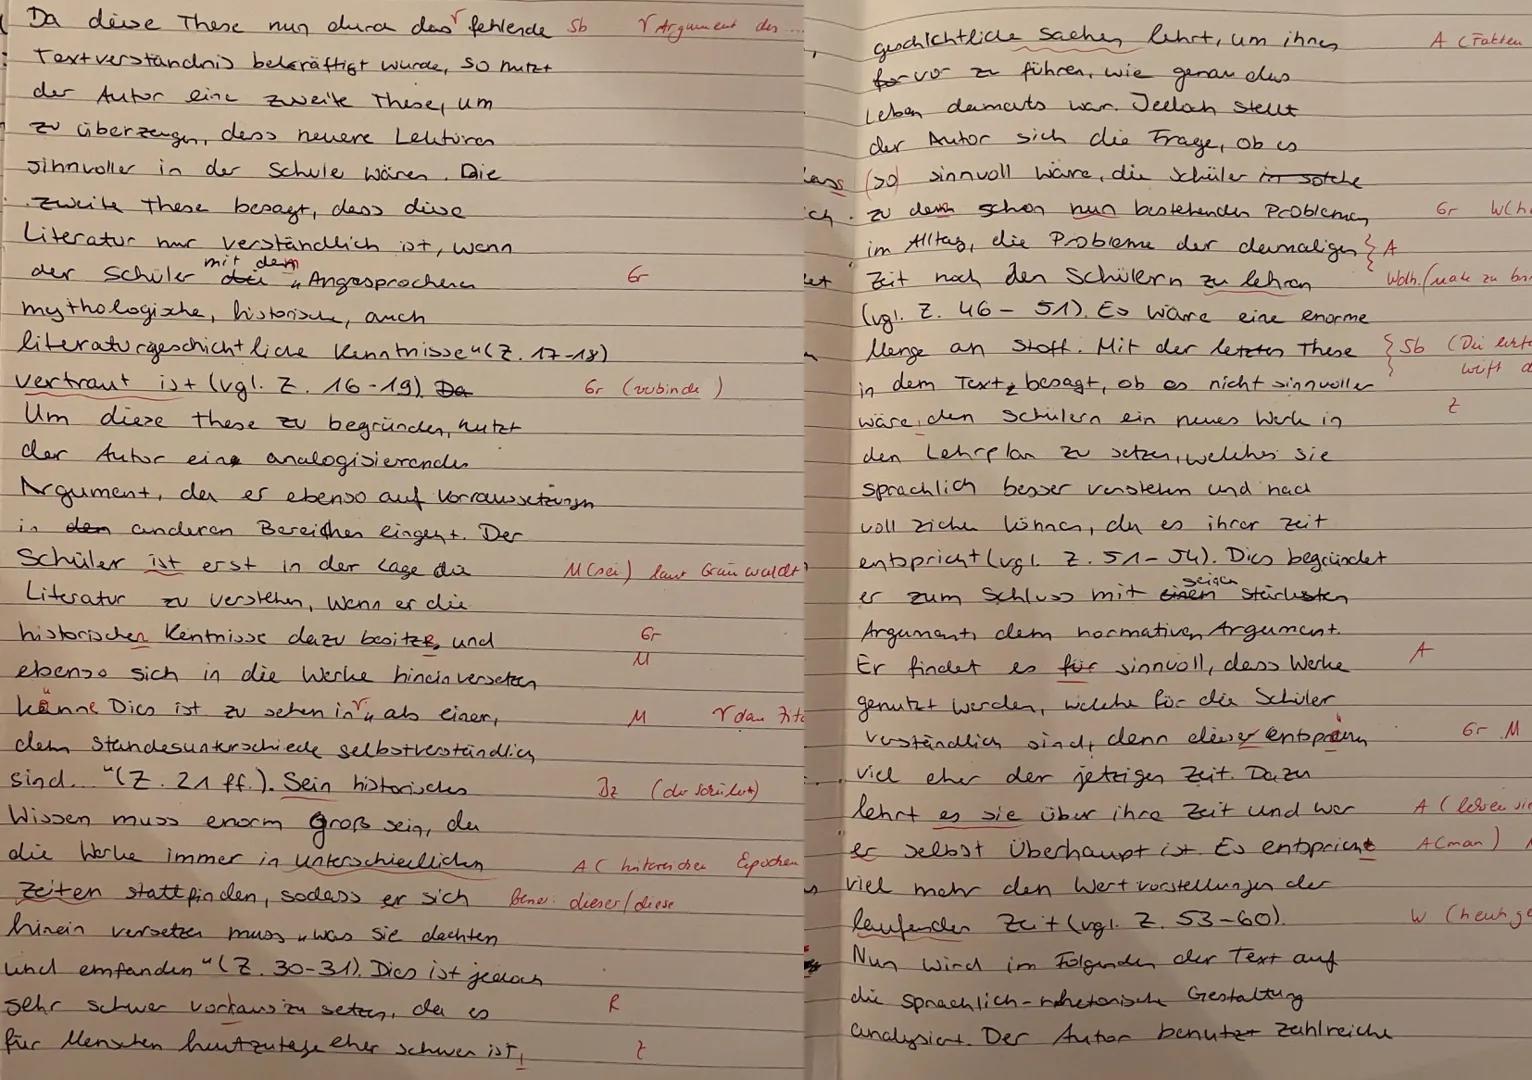 Da diese These nun durch das fehlende Sb Argument des ...
Textverständnis bekräftigt wurde, so nutzt
der Autor eine zweite These, um
zu überzeugen, dass neuere Lektüren
sinnvoller in der Schule wären. Die
zweite These besagt, dass diese
Literatur nur verständlich ist, wenn
der Schüler mit dem "Angesprochenen Gr
mythologische, historische, auch
literaturgeschichtliche Kenntnisse" (Z. 17-18)
vertraut ist (vgl. Z. 16-19) Da Gr (verbinde)
Um diese These zu begründen, nutzt
der Autor eine analogisierendes
Argument, da er ebenso auf Vorraussetzungen
in den anderen Bereichen eingeht. Der
Schüler ist erst in der Lage die M (sei) laut Grünwaldt
Literatur zu verstehen, wenn er die
historischen Kentnisse dazu besitzt, und Gr
ebenso sich in die Werke hineinversetzen M
könne Dies ist zu sehen in "als einer, M
dem Standesunterschiede selbstverständlich
sind..." (Z. 21 ff.). Sein historisches Bz (der Schüler)
Wissen muss enorm groß sein, da
die Werke immer in unterschiedlichen A (historischen Epochen
Zeiten stattfinden, sodass er sich dieser/diese
hinein versetzen muss "was sie dachten
und empfanden" (Z. 30-31). Dies ist jedoch
sehr schwer vorauszusetzen, da es R
für Menschen heutzutage eher schwer ist, Z
geschichtliche Sachen lehrt, um ihnen A (Fakten
for vor zu führen, wie genau das
Leben damals war. Jedoch stellt
der Autor sich die Frage, ob es
(so) sinnvoll wäre, die Schüler in solche
zu den schon nun bestehenden Problemen, Gr
im Alltag, die Probleme der damaligen A
Zeit noch den Schülern zu lehren Wdh. (nahe zu
(vgl. Z. 46 - 51). Es wäre eine enorme
Menge an Stoff. Mit der letzten These Sb
in dem Text, besagt, ob es nicht sinnvoller
wäre, den Schülern ein neues Werk in Z
den Lehrplan zu setzen, welches sie
sprachlich besser verstehen und nach
voll ziehen können, da es ihrer Zeit
entspricht (vgl. Z. 51-54). Dies begründet
er zum Schluss mit seinem stärksten
Argument, dem normativen Argument.
Er findet es für sinnvoll, dass Werke A
genutzt werden, welche für die Schüler
verständlich sind, denn dieser entsprechen Gr M
viel eher der jetzigen Zeit. Dazu
lehrt es sie über ihre Zeit und wer A
er selbst überhaupt ist. Es entspricht A (man)
viel mehr den Wertvorstellungen der
laufenden Zeit (vgl. Z. 53-60). W
Nun wird im Folgenden der Text auf
die sprachlich-rhetorische Gestaltung
analysiert. Der Autor benutzt zahlreiche